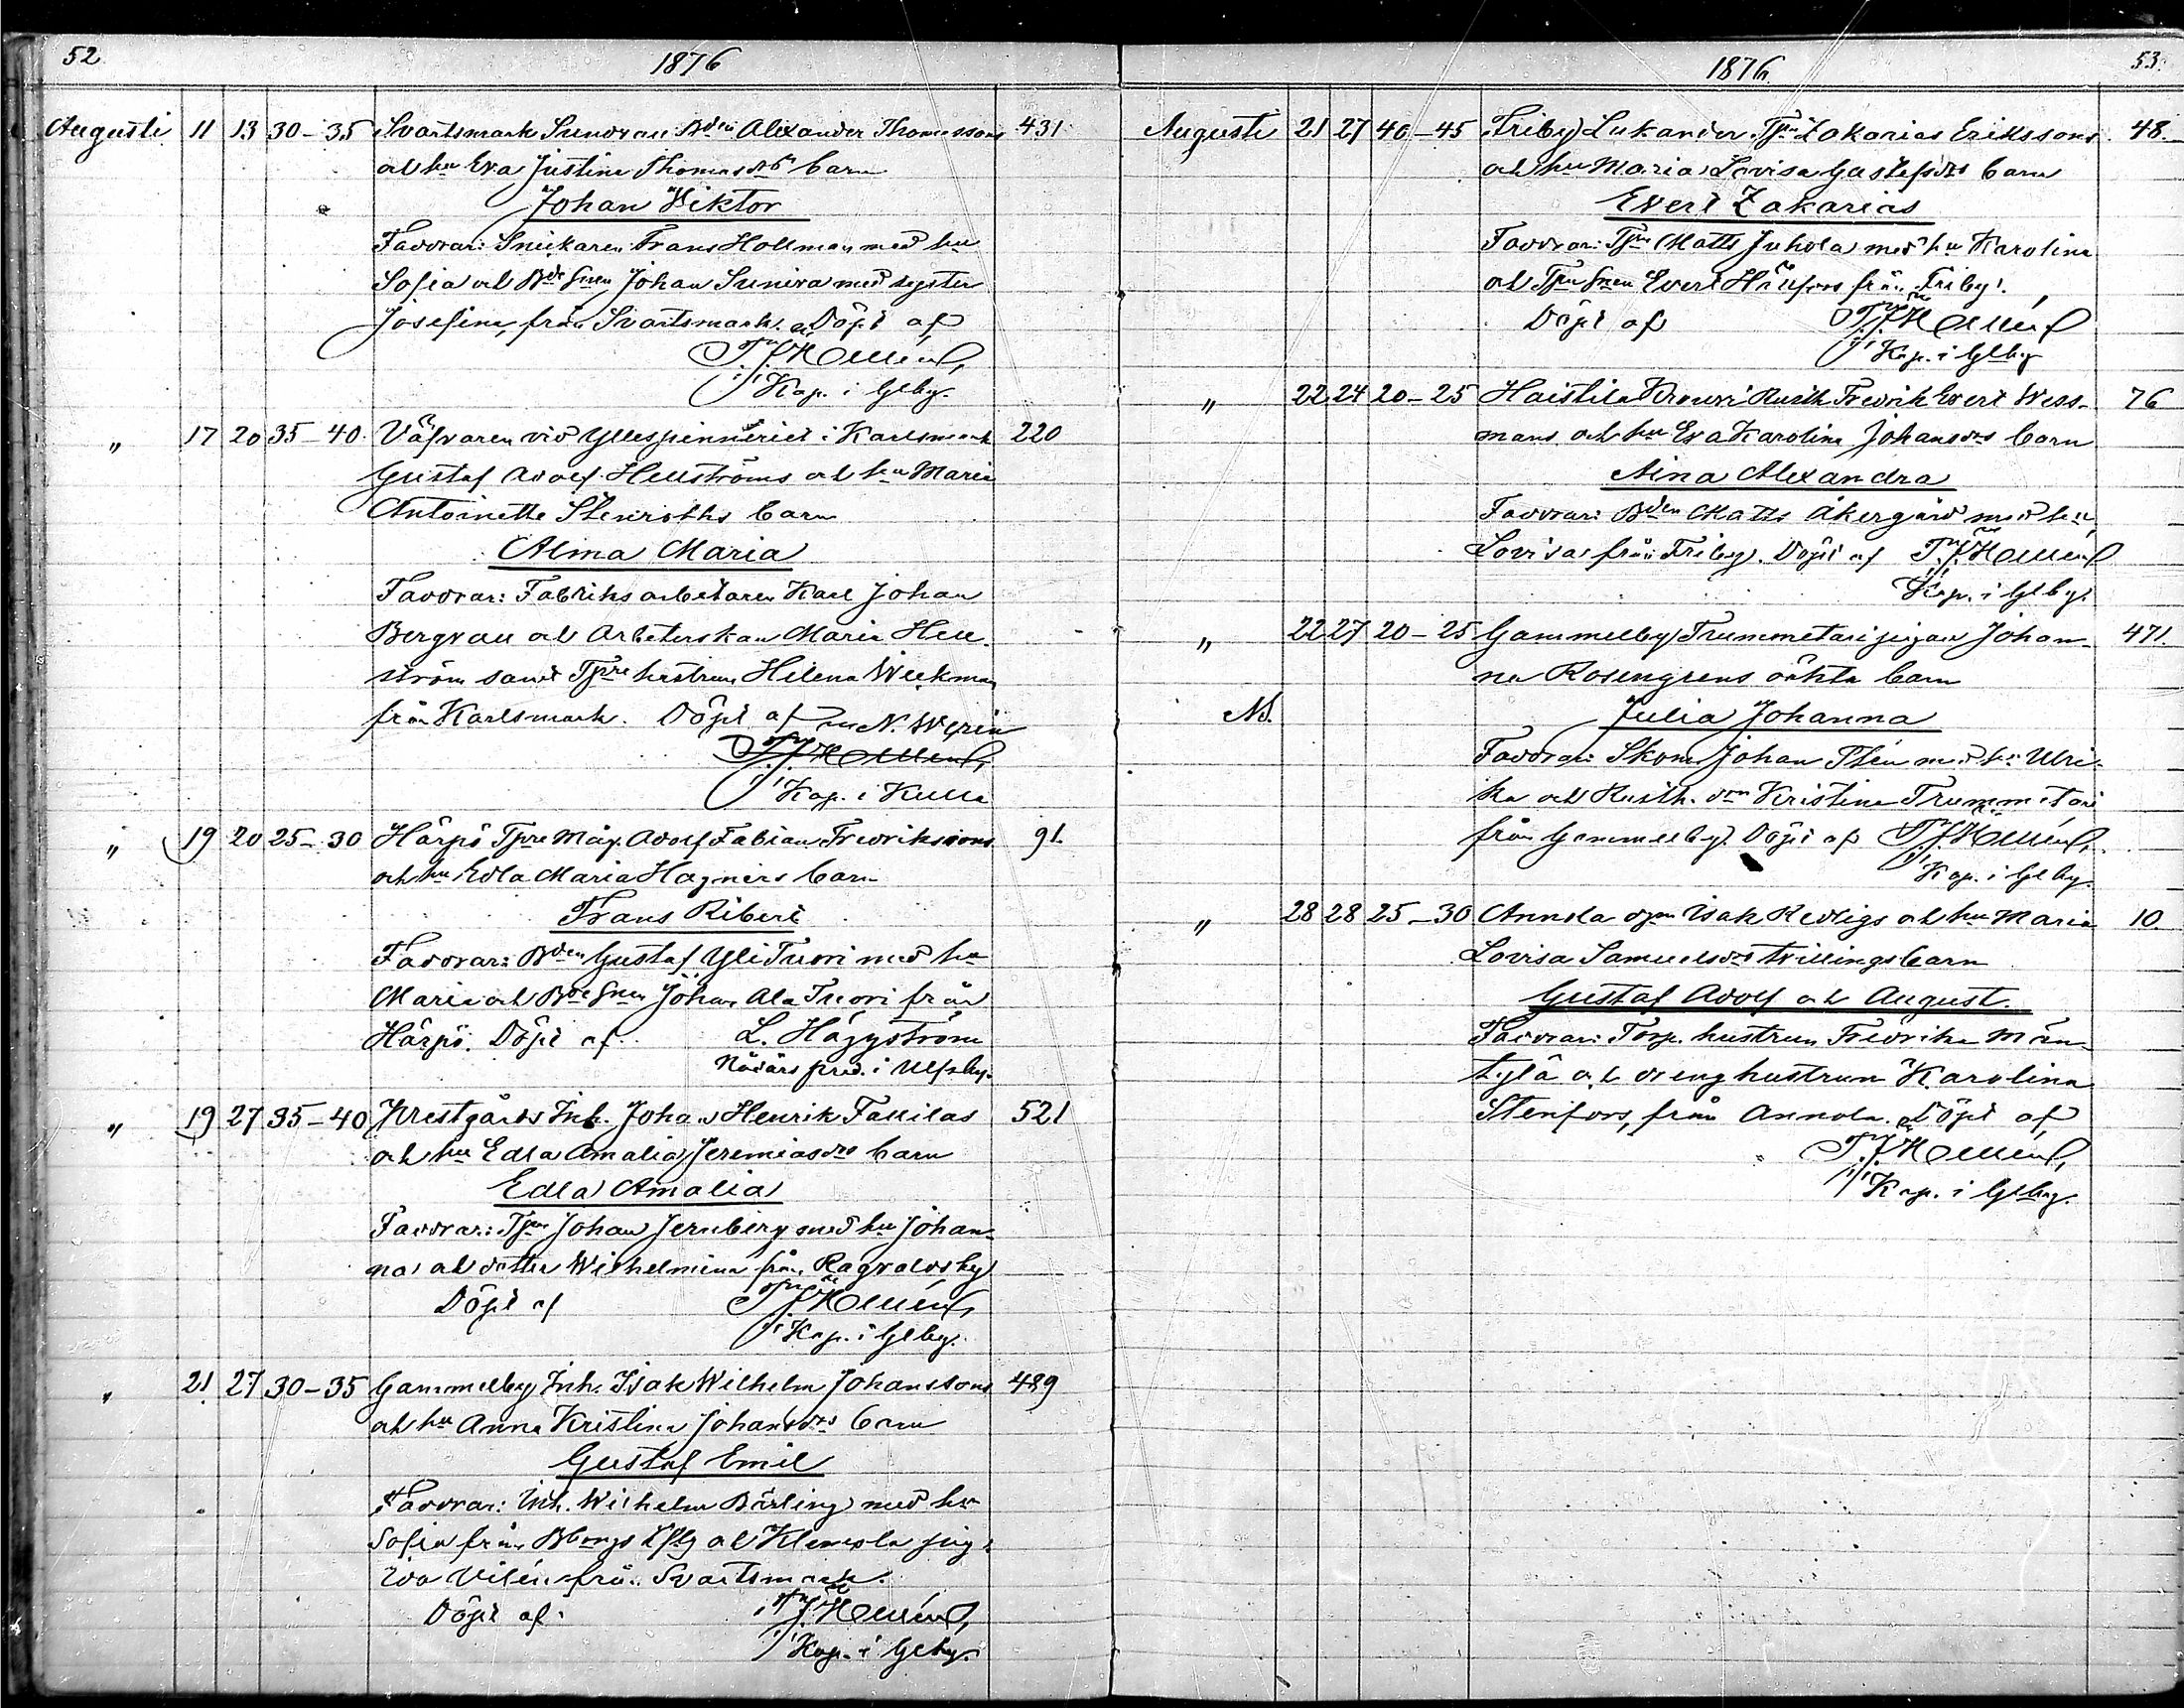 52
1876
Augusti 11 13 30-35 Svartsmark Sundvall Bden Alexander Thomassons 431
och hu Eva Justina Thomasdrs barn
Johan Wiktor
Faddrar: Snickaren Frans Hollman med hu
Sofia och Bde Snen Johan med syster
Josefina, från Svartsmark. Döpt af
Kap. i Glby.
" 17 20 35-40. Väfvaren vid Yllespinneriet i Karlsmark 220
Gustaf Adolf Hellströms och hu Maria
Antoinette Stenroths barn
Alma Maria
Faddrar: Fabriksarbetaren Karl Johan
Bergvall och Arbeterskan Maria Hell-
ström samt Tpre hustrun Helena Weckman
från Karlsmark. Döpt af N.
Kap. i Kulla
" 19 20 25-30 Härpö Tpre Måg. Adolf Fabian Fredrikssons 91.
och hu Edla Maria Hagners barn
Frans Ribert
Faddrar: Bden Gustaf Yli Tuori med hu
Maria och Bde Snen Johan Ala Tuori från
Härpö. Döpt af L. Häggström
Nådårs pred. i Ulfsby.
" 19 27 35-40 Prestgårds Inh. Johan Henrik Fallilas 521
och hu Edla Amalia Jeremiasdrs barn
Edla Amalia
Faddrar: Tpn Johan Jernberg med hu Johan-
na och dotter Wilhelmina från Ragvaldsby
Döpt af
Kap. i Glby.
" 21 27 30-35 Gammelby Inh. Isak Wilhelm Johanssons 489
och hu Anna Kristina Johansdrs barn
Gustaf Emil
Faddrar: Inh. Wilhelm Bärling med hu
Sofia från och Klemola pig.
Ida Vilén från Svartsmark.
Döpt af
Kap. i Glby.
1876.
53.
Augusti 21 27 40-45 Friby Lukander Tpn Zakarias Erikssons 48.
och hu Maria Lovisa Gustafsdrs barn
Evert Zakarias
Faddrar: Tpn Matts Juhola med hu Karolina
och Tpre Snen Evert Hällfors från Friby.
Döpt af
Kap. i Glby
" 22 24 20-25 Haistila Krouvi Rusth. Fredrik Evert Wess- 76
mans och hu Eva Karolina Johansdrs barn
Aina Alexandra
Faddrar: Bden Matts Åkergård med hu
Lovisa från Friby. Döpt af
Kap. i Glby.
" 22 27 20-25 Gammelby Trummetari pigan Johan- 471.
na Rosengrens oäkta barn
Julia Johanna
Faddrar: Skom. Johan Sten med hu Ulri-
ka och Rusth. drn Kristina Trummetari
från Gammelby. Döpt af
Kap. i Glby.
" 28 28 25-30 Annola Isak Redligs och hu Maria 10.
Lovisa Samuelsdrs tvillingsbarn
Gustaf Adolf och August.
Faddrar: Torp. hustrun Fredrika Män-
tylä och drenghustrun Karolina
Stenfors, från Annola. Döpt af
Kap. i Glby.